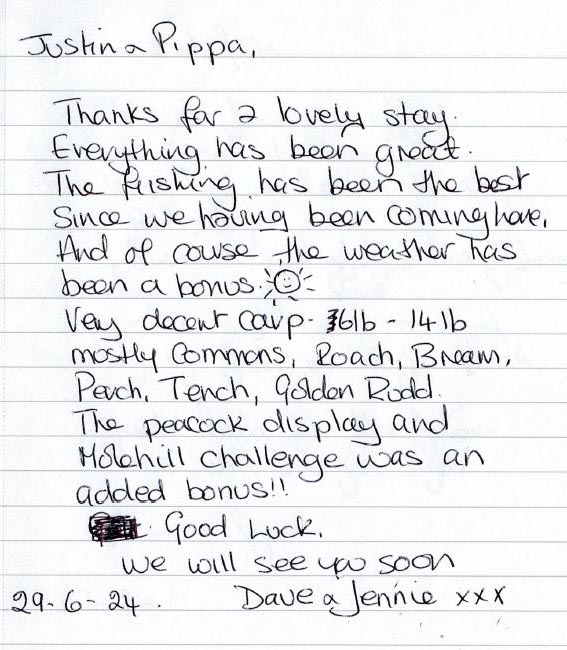 Justin & Pippa,
Thanks for a lovely stay.
Everything has been great.
The fishing has been the best
Since we having been coming here,
And of course the weather has
been a bonus.
Very decent carp - 6lb - 14lb
mostly Commons, Roach, Bream,
Perch, Tench, Golden Rudd.
The peacock display and
Molehill challenge was an
added bonus!!
Good Luck.
we will see you soon
29-6-24. Dave & Jennie xxx